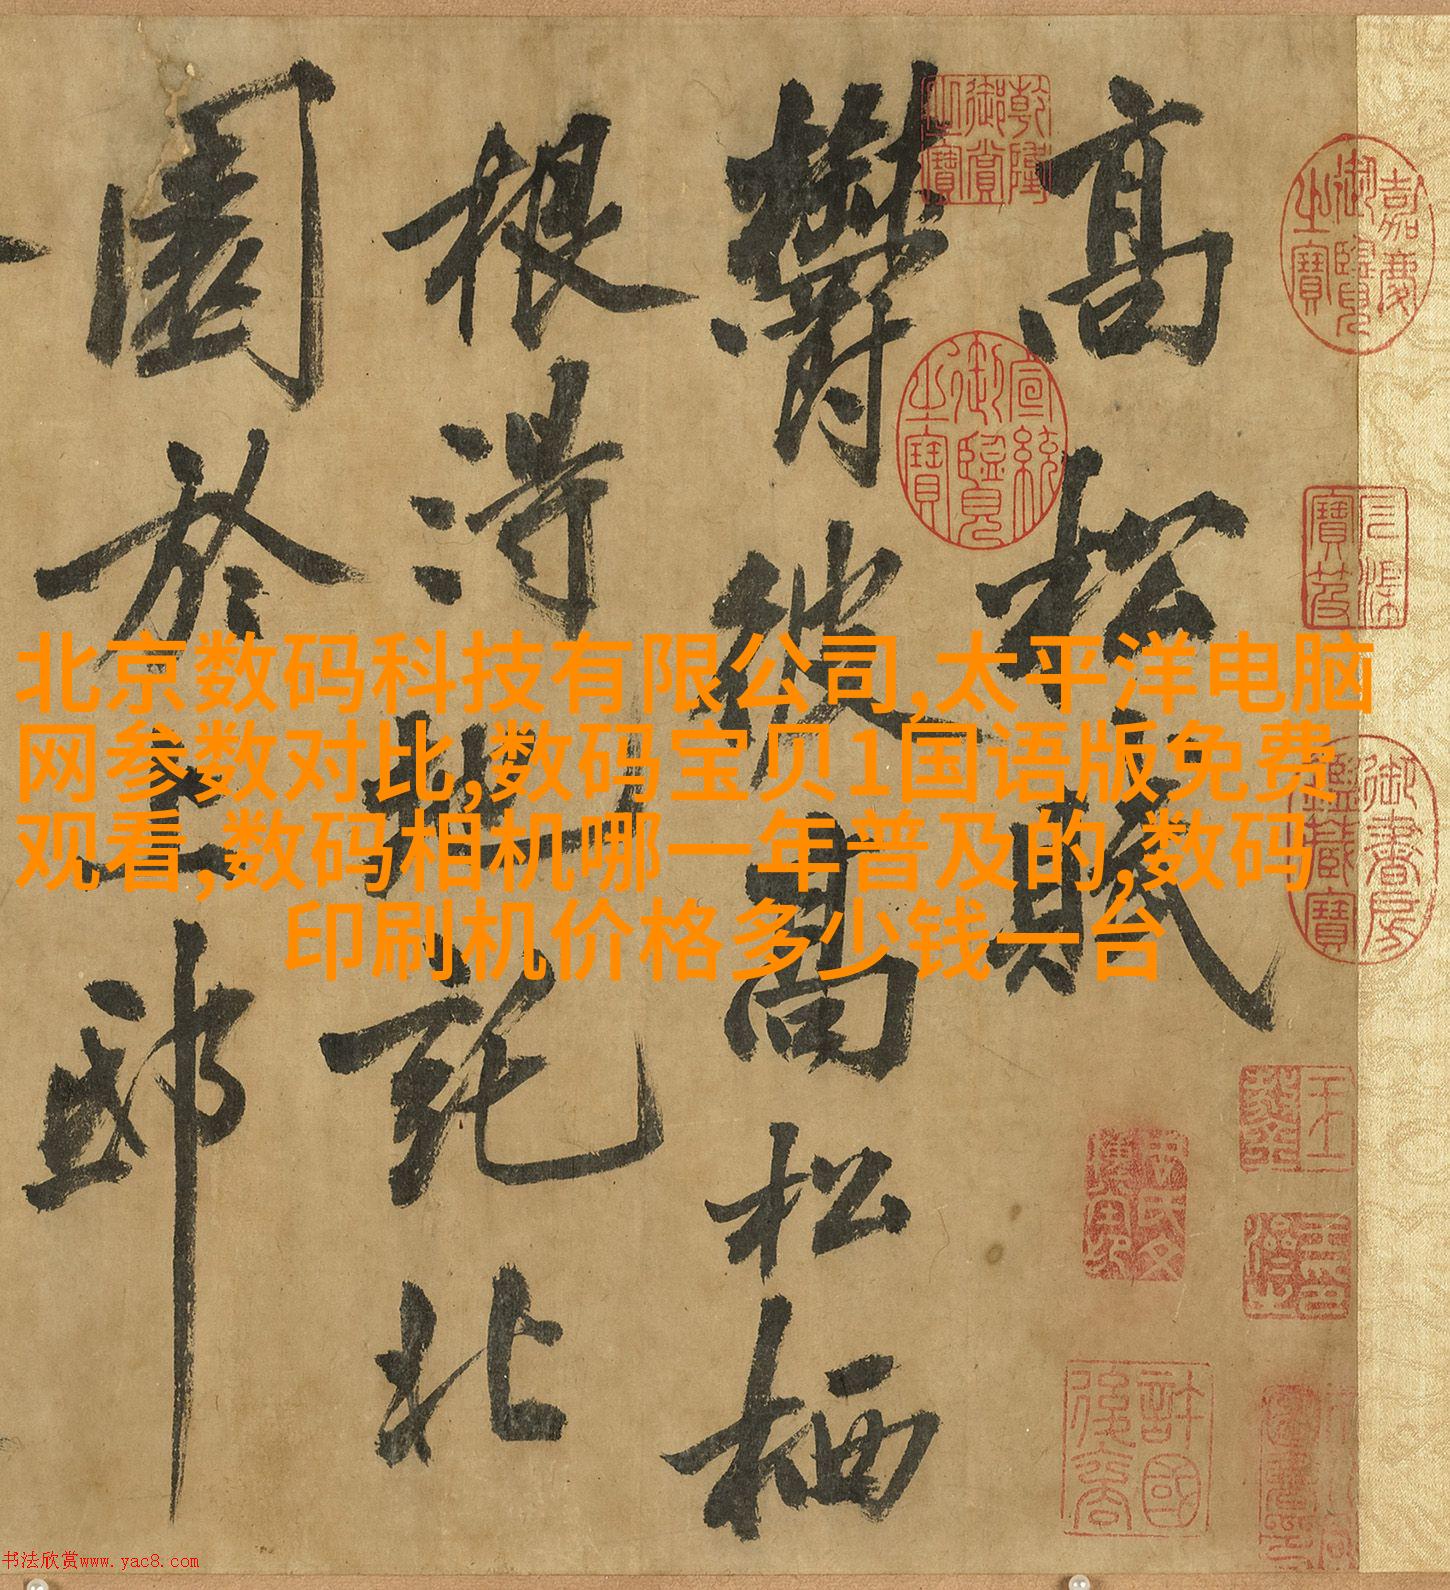 高松賦
鬱彼高松栖
根得地託北
園於上邸
乾隆御賞之寶
嘉慶御覽之寶
宣統御覽之寶
三希堂
御書房鑑藏寶
許國後裔
北京数码科技有限公司,太平洋电脑
网参数对比,数码宝贝1国语版免费
观看,数码相机哪一年普及的,数码
印刷机价格多少钱一台
书法欣赏www.yac8.com